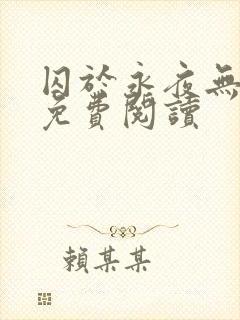 囚於永夜無
免費閱讀
賴某某